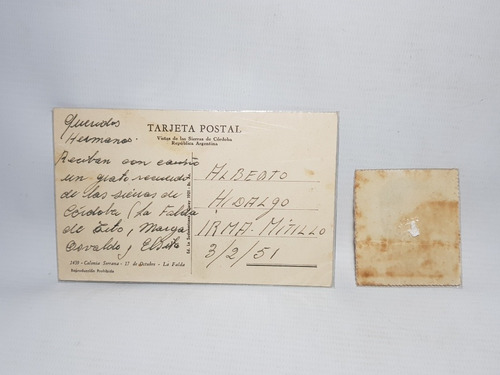 TARJETA POSTAL
Vistas de las Sierras de Córdoba
República Argentina
Queridos
Hermanos.
Reciban con cariño
un grato recuerdo
de las sierras de
Córdoba (La Falda
de Tito, Marga
Osvaldo y
ALBERTO
HIDALGO
IRMA-MITILLO
3/2/51
2459 - Colonia Serrana - 17 de Octubre - La Falda
Reproducción Prohibida